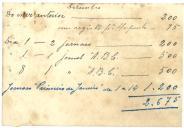 Setembro
Do mez anterior 200
um regist 75
Dia 1 — 2 jornaes 200
" 1 — 1 jornal A.B.C. 500
" 8 — 1 " A.B.C. 500
Jornaes Primeiro de Janeiro de 1 a 14 1.200
2.675